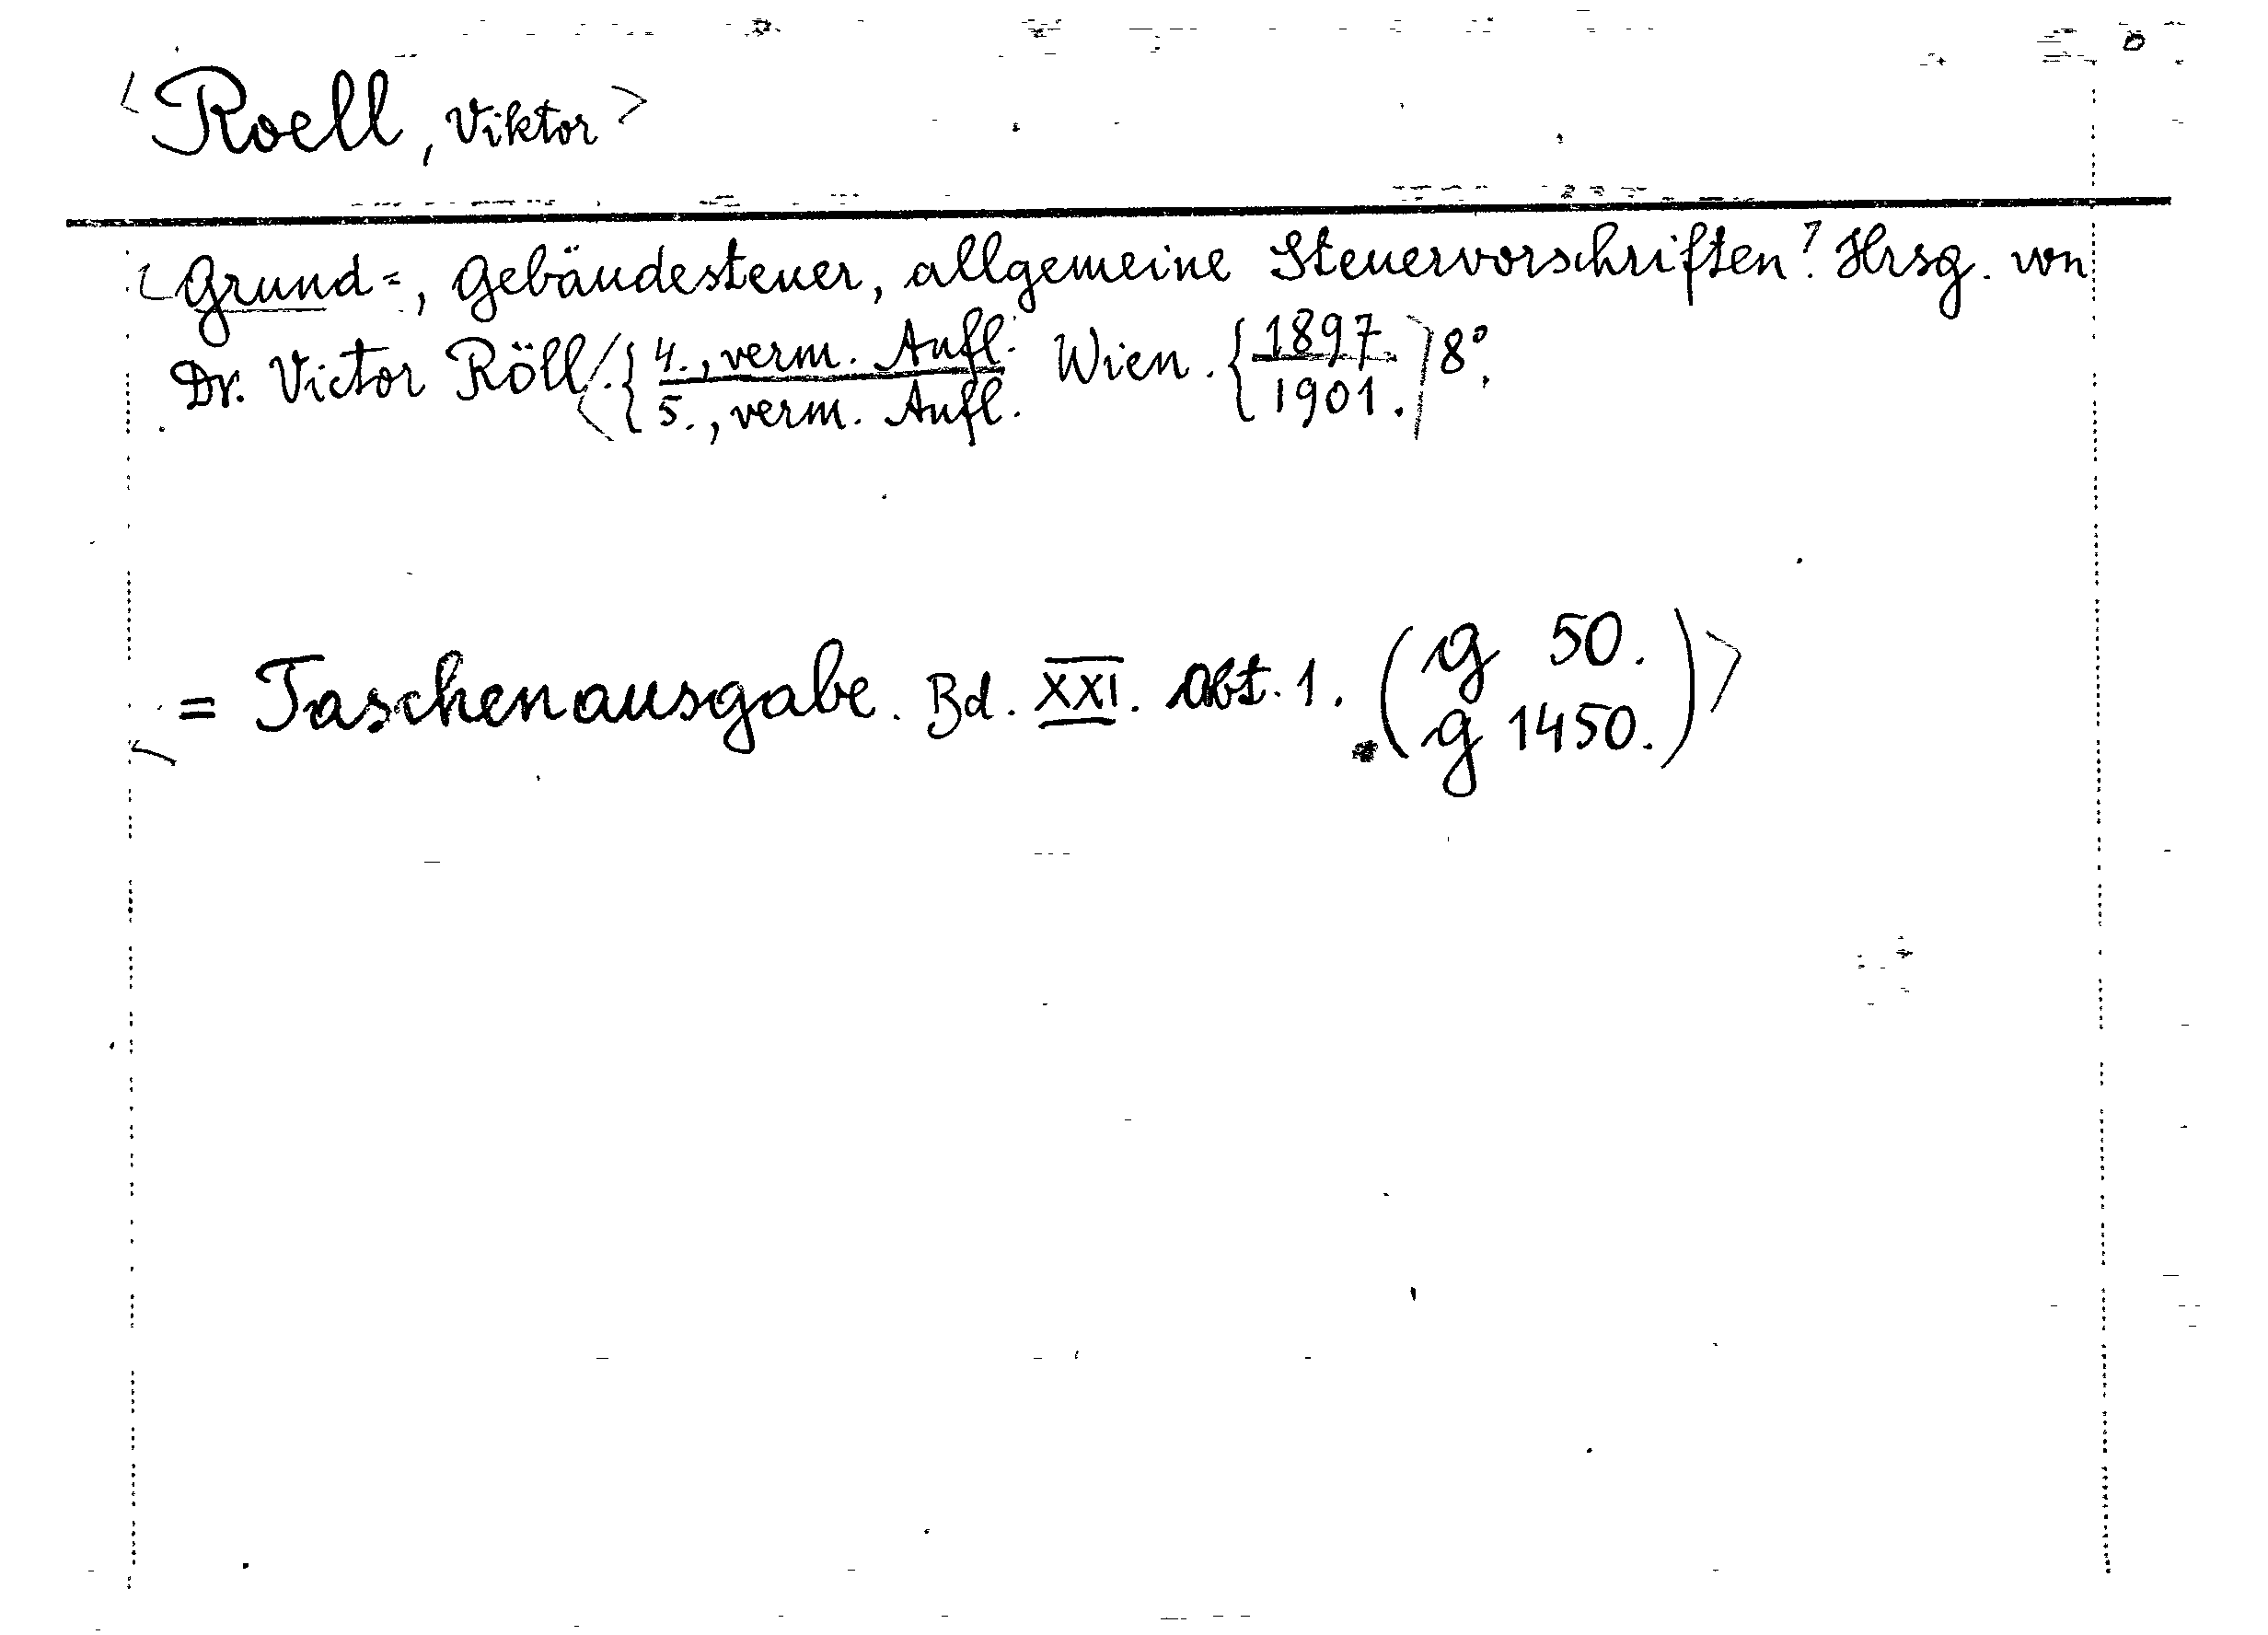 <Roell, Viktor>
<Grund=, Gebäudesteuer, allgemeine Steuervorschriften? Hrsg. von
Dr. Victor Röll. <{ 4., verm. Aufl. Wien. { 1897. > 8°.
5., verm. Aufl. 1901.
= Taschenausgabe. Bd. XXI. Abt. 1. ( g 50.
g 1450. ) >